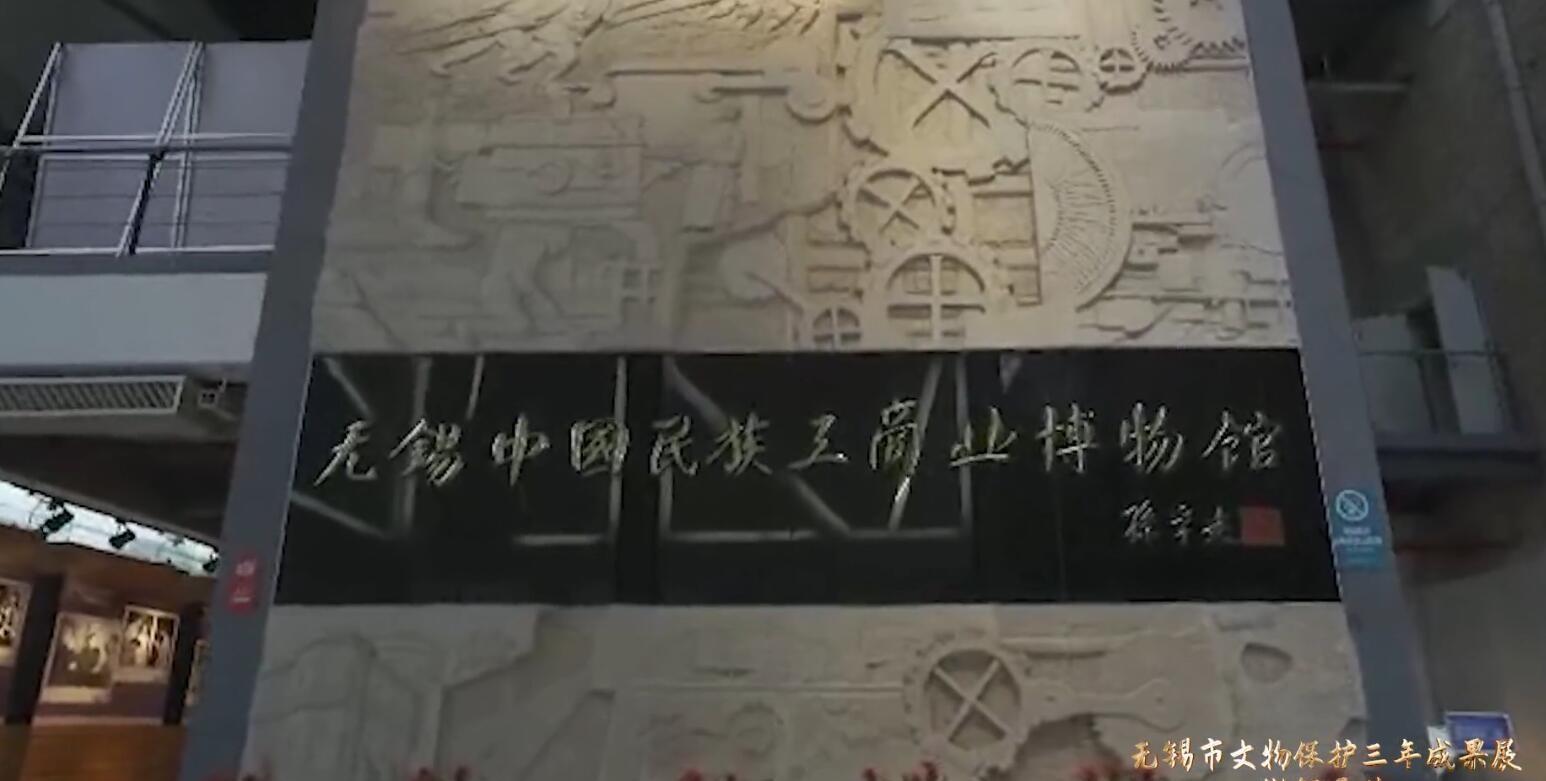 无锡中国民族工商业博物馆
孙家正
无锡市文物保护三年成果展